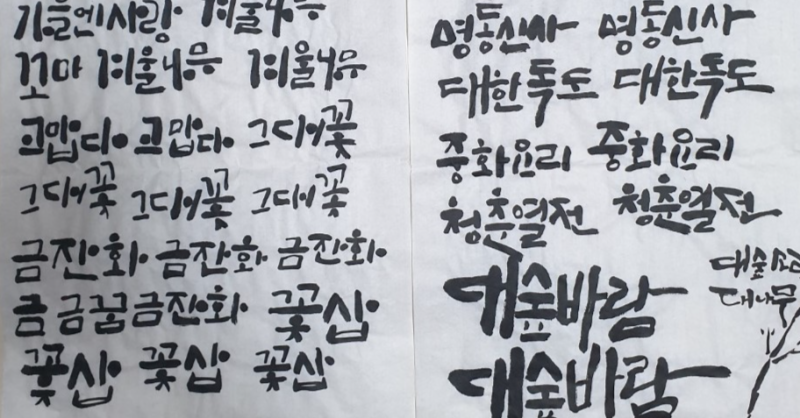 가을엔사랑 겨울나무
꼬마 겨울나무 겨울나무
고맙다 고맙다 그대의꽃
그대의꽃 그대의꽃 그대의꽃
금잔화 금잔화 금잔화
금 금꿈금잔화 꽃삽
꽃삽 꽃삽 꽃삽
명동신사 명동신사
대한독도 대한독도
중화요리 중화요리
청춘열전 청춘열전
대숲바람
대숲바람
대숲소리
대나무